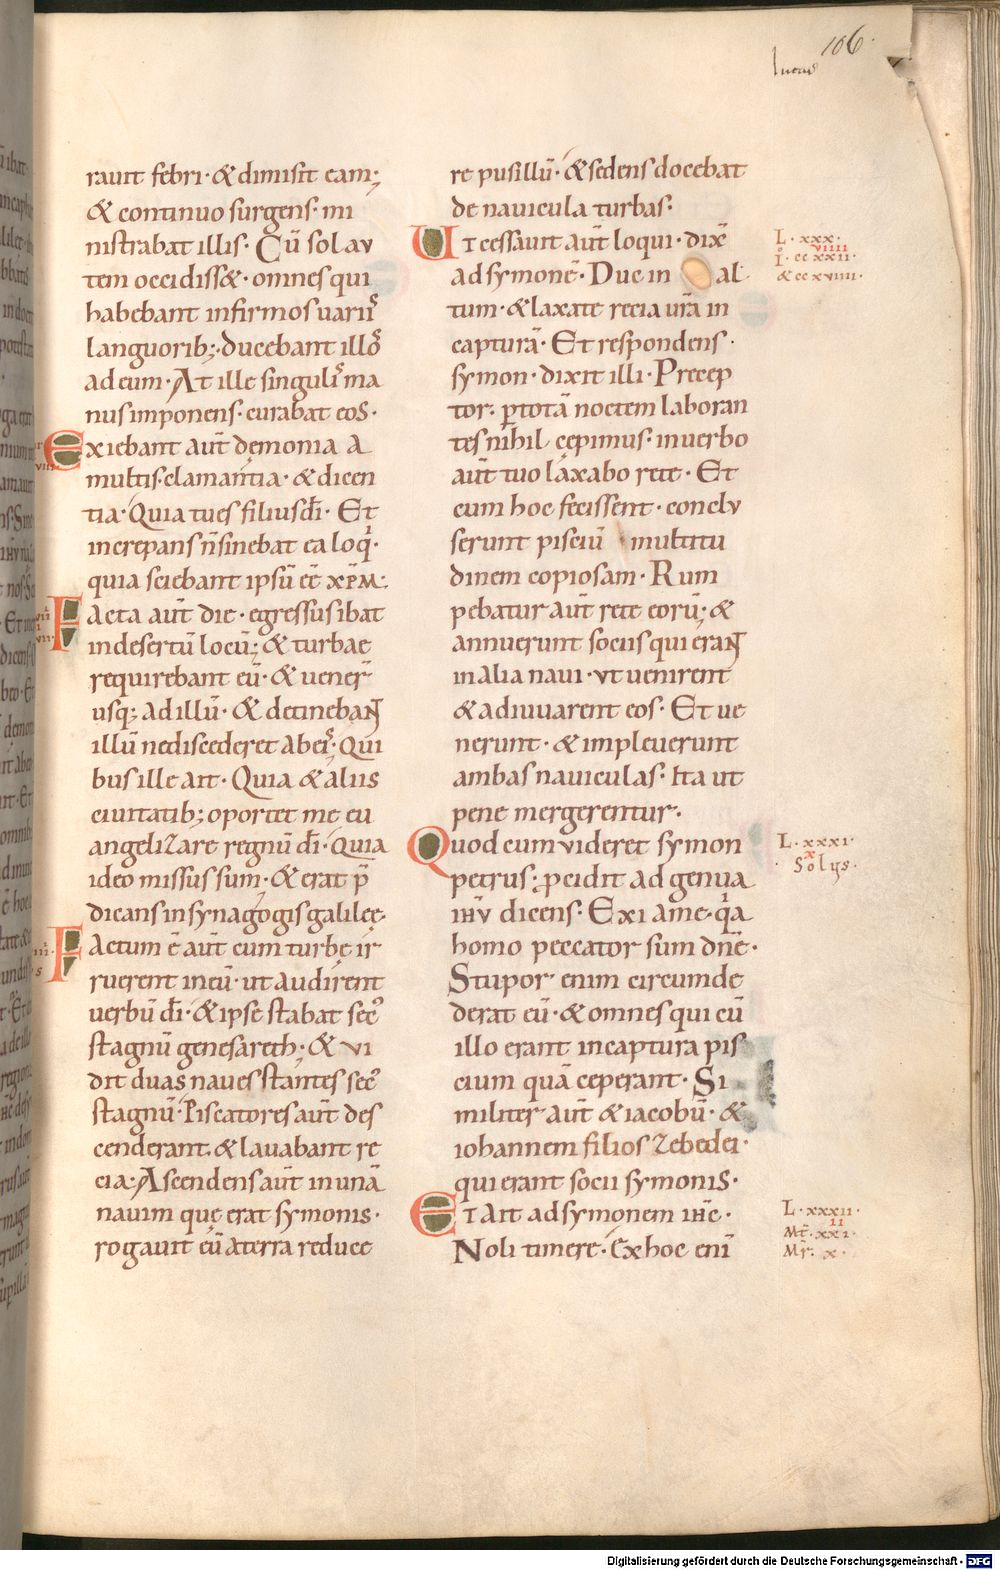 106.
lucas
rauit febri· & dimisit eam;
& continuo surgens· mi
nistrabat illis· Cū sol au
tem occidiss&· omnes qui
habebant infirmos uariis
languorib;· ducebant illos
ad eum· At ille singulis ma
nus imponens· curabat eos·
Exiebant aut̄ dęmonia a
multis· clamantia· & dicen
tia· Quia tu es filius dī· Et
increpans n̄ sinebat ea loqi·
quia sciebant ipsū eē xp̄m·
Facta aut̄ die· egressus ibat
in desertū locū; & turbae
requirebant eū· & uener̄
usq; ad illū· & detinebant
illū ne discederet ab eis· Qui
bus ille ait· Quia & aliis
ciuitatib; oportet me eu
angelizare regnū dī· Quia
ideo missus sum· & erat p̄
dicans in synagogis galileę·
Factum ē aut̄ cum turbę ir
ruerent in eū· ut audirent
uerbū dī· & ipse stabat sec̄
stagnū genesareth· & vi
dit duas naues stantes sec̄
stagnū· Piscatores aut̄ des
cenderant· & lauabant re
cia· Ascendens aut̄ in unā
nauim quę erat symonis·
rogauit eū a terra reduce
re pusillū· & sedens docebat
de nauicula turbas·
Ut cessauit aut̄ loqui· dix̄
ad symonē· Duc in al
tum· & laxate recia ur̄a in
capturā· Et respondens·
symon· dixit illi· Precep
tor· p totā noctem laboran
tes nihil cepimus· in uerbo
aut̄ tuo laxabo rete· Et
cum hoc fecissent· conclu
serunt pisciū multitu
dinem copiosam· Rum
pebatur aut̄ rete eorū; &
annuerunt sociis qui erant
in alia naui· ut uenirent
& adiuuarent eos· Et ue
nerunt· & impleuerunt
ambas nauiculas· Ita ut
pene mergerentur·
Quod cum uideret symon
petrus· pcidit ad genua
ihū dicens· Exi a me· qa
homo peccator sum dn̄e·
Stupor enim circumde
derat eū· & omnes qui cū
illo erant in captura pis
cium quā ceperant· Si
militer aut̄ & iacobū· &
iohannem filios zebedei·
qui erant socii symonis·
Et ait ad symonem ihc·
Noli timere· Ex hoc enī
L· xxx·
viiii
I· cc xxii·
& cc xviiii·
L· xxxi·
x
Solus·
L· xxxii·
ii
Mt̄· xxi·
Mr̄· x·
Digitalisierung gefördert durch die Deutsche Forschungsgemeinschaft - DFG